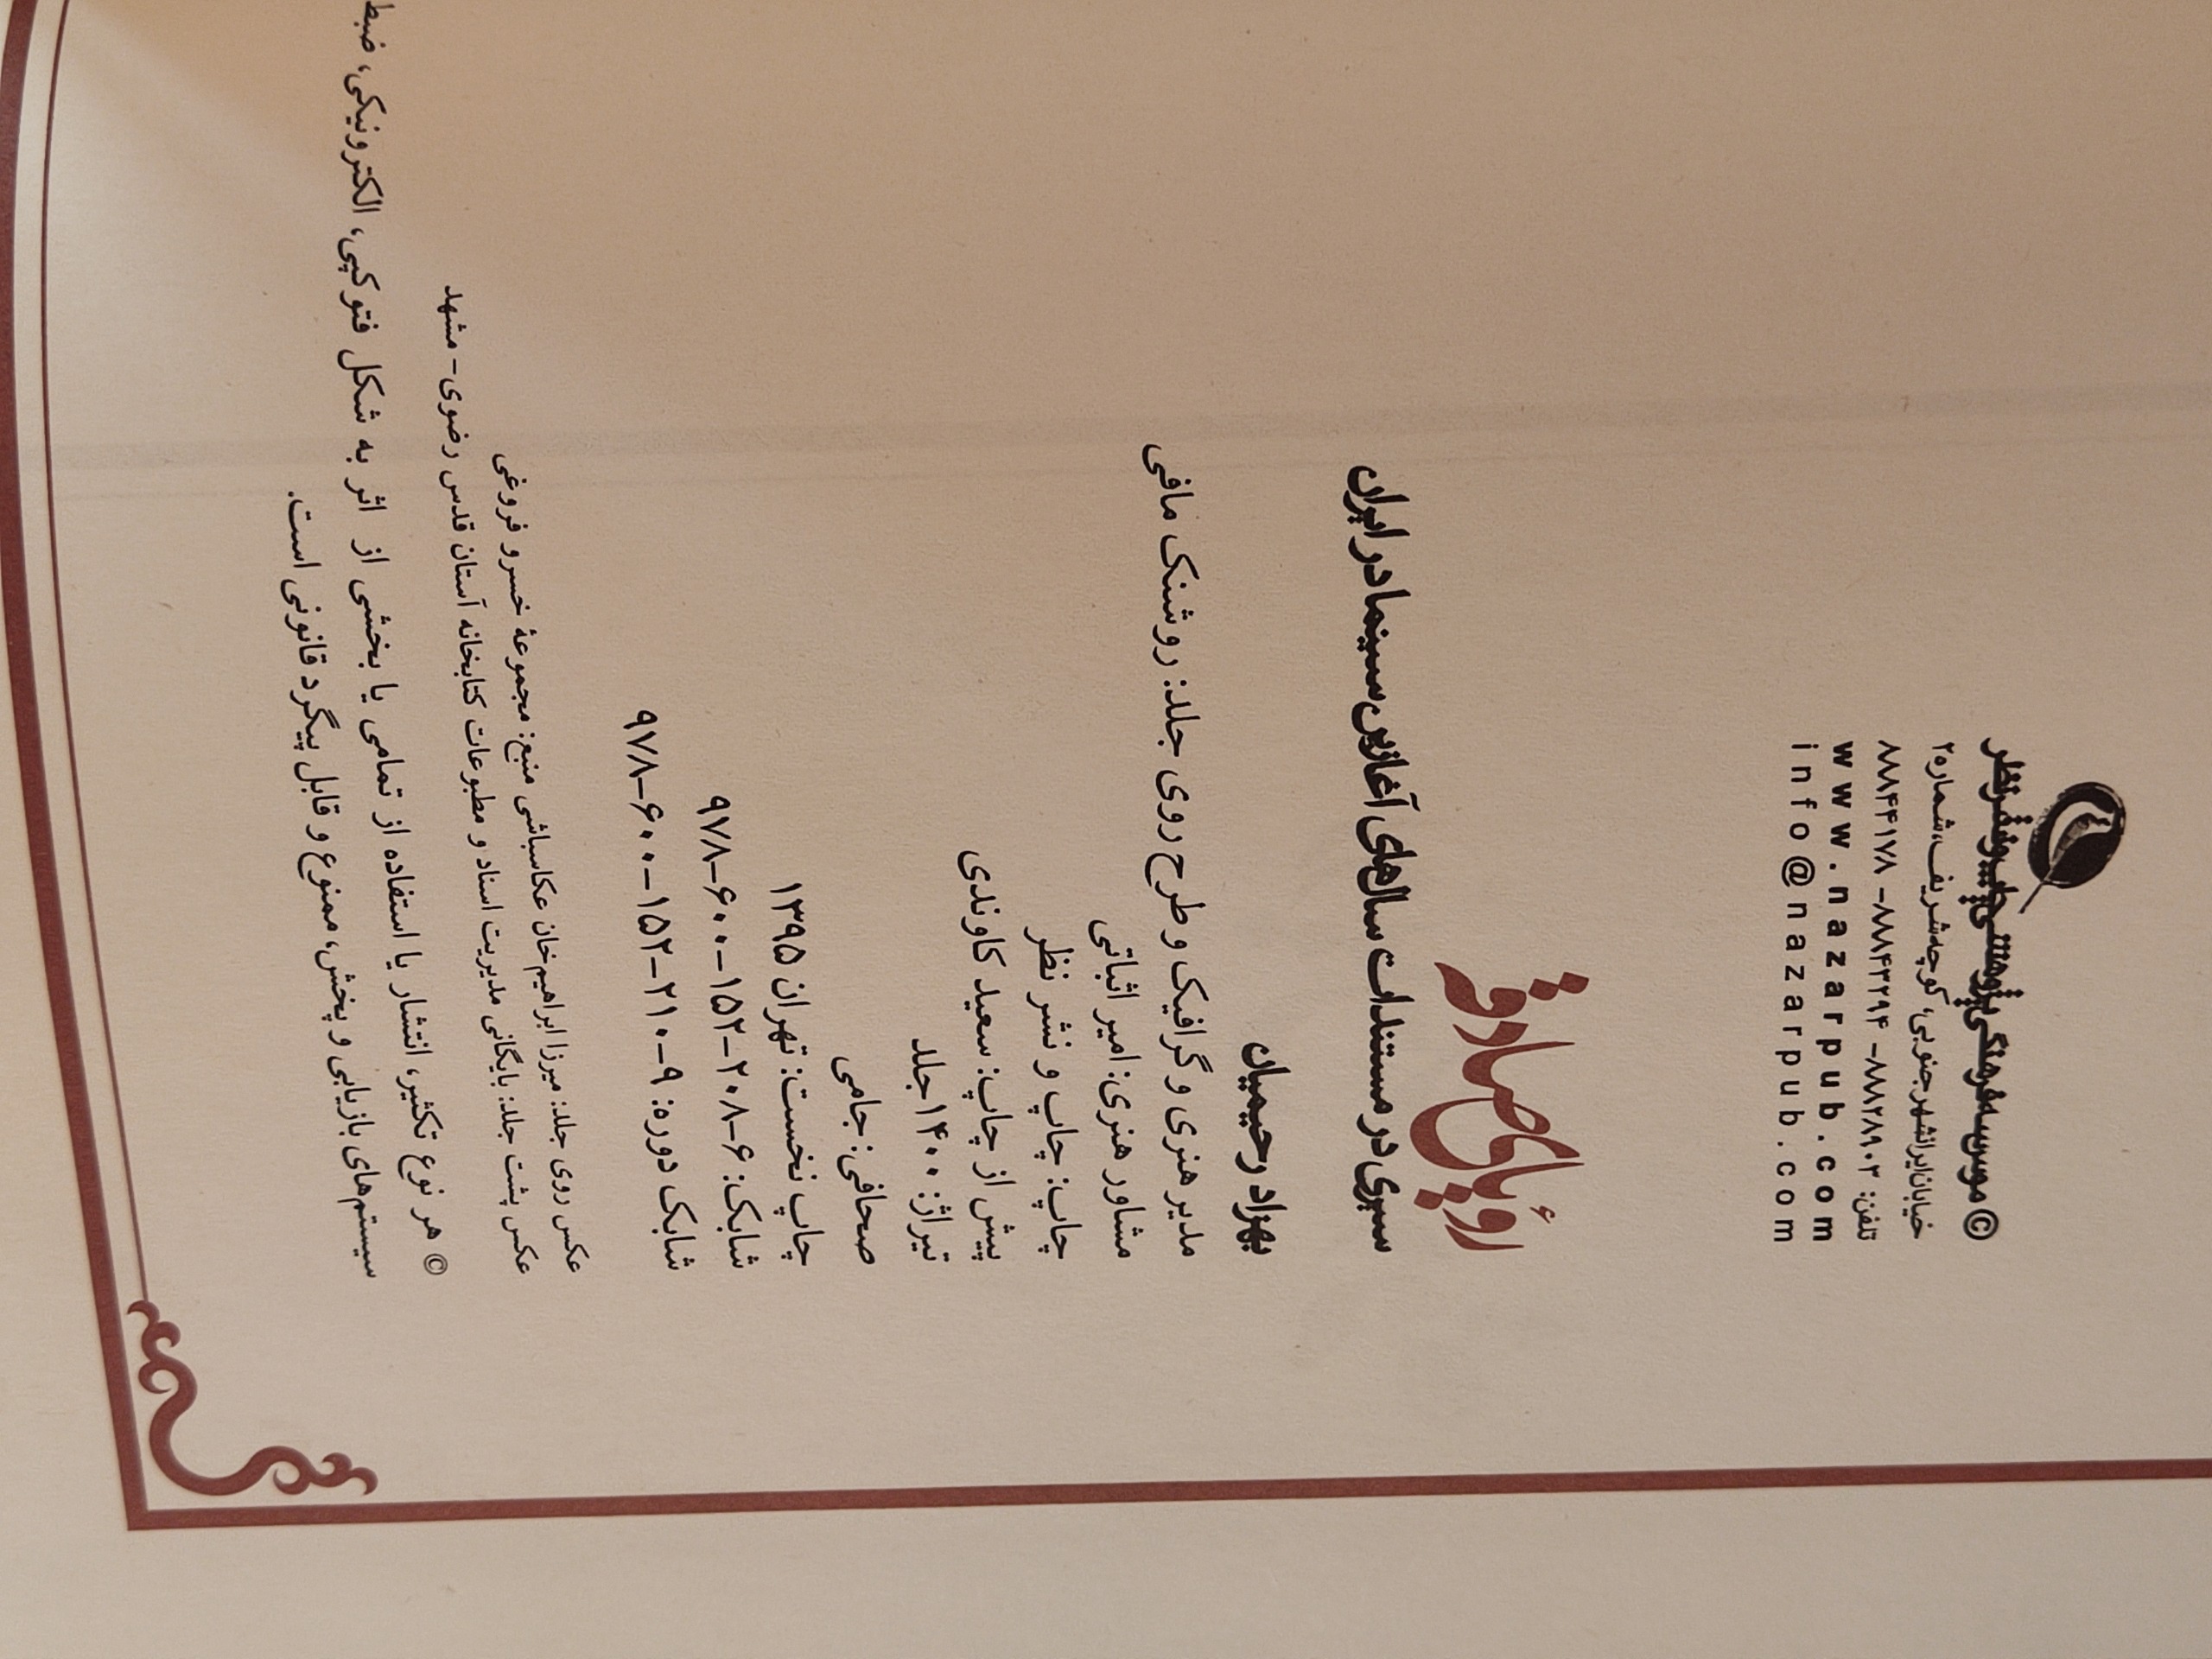 © موسسه فرهنگی پژوهشی چاپ و نشر نظر
خیابان ایرانشهر جنوبی، کوچه شریف، شماره ۲
تلفن: ۸۸۸۲۸۹۰۲ - ۸۸۸۴۳۲۹۴ - ۸۸۸۴۴۱۷۸
www.nazarpub.com
info@nazarpub.com
رؤیای صادقه
سیری در مستندات سال‌های آغازین سینما در ایران
بهزاد رحیمیان
مدیر هنری و گرافیک و طرح روی جلد: روشنک مافی
مشاور هنری: امیر اثباتی
چاپ: چاپ و نشر نظر
پیش از چاپ: سعید کاوندی
تیراژ: ۱۴۰۰ جلد
صحافی: جامی
چاپ نخست: تهران ۱۳۹۵
شابک: ۶-۲۰۸-۱۵۲-۶۰۰-۹۷۸
شابک دوره: ۹-۲۱۰-۱۵۲-۶۰۰-۹۷۸
عکس روی جلد: میرزا ابراهیم‌خان عکاسباشی منبع: مجموعهٔ خسرو فروغی
عکس پشت جلد: بایگانی مدیریت اسناد و مطبوعات کتابخانه آستان قدس رضوی - مشهد
© هر نوع تکثیر، انتشار یا استفاده از تمامی یا بخشی از اثر به شکل فتوکپی، الکترونیکی، ضبط
سیستم‌های بازیابی و پخش، ممنوع و قابل پیگرد قانونی است.